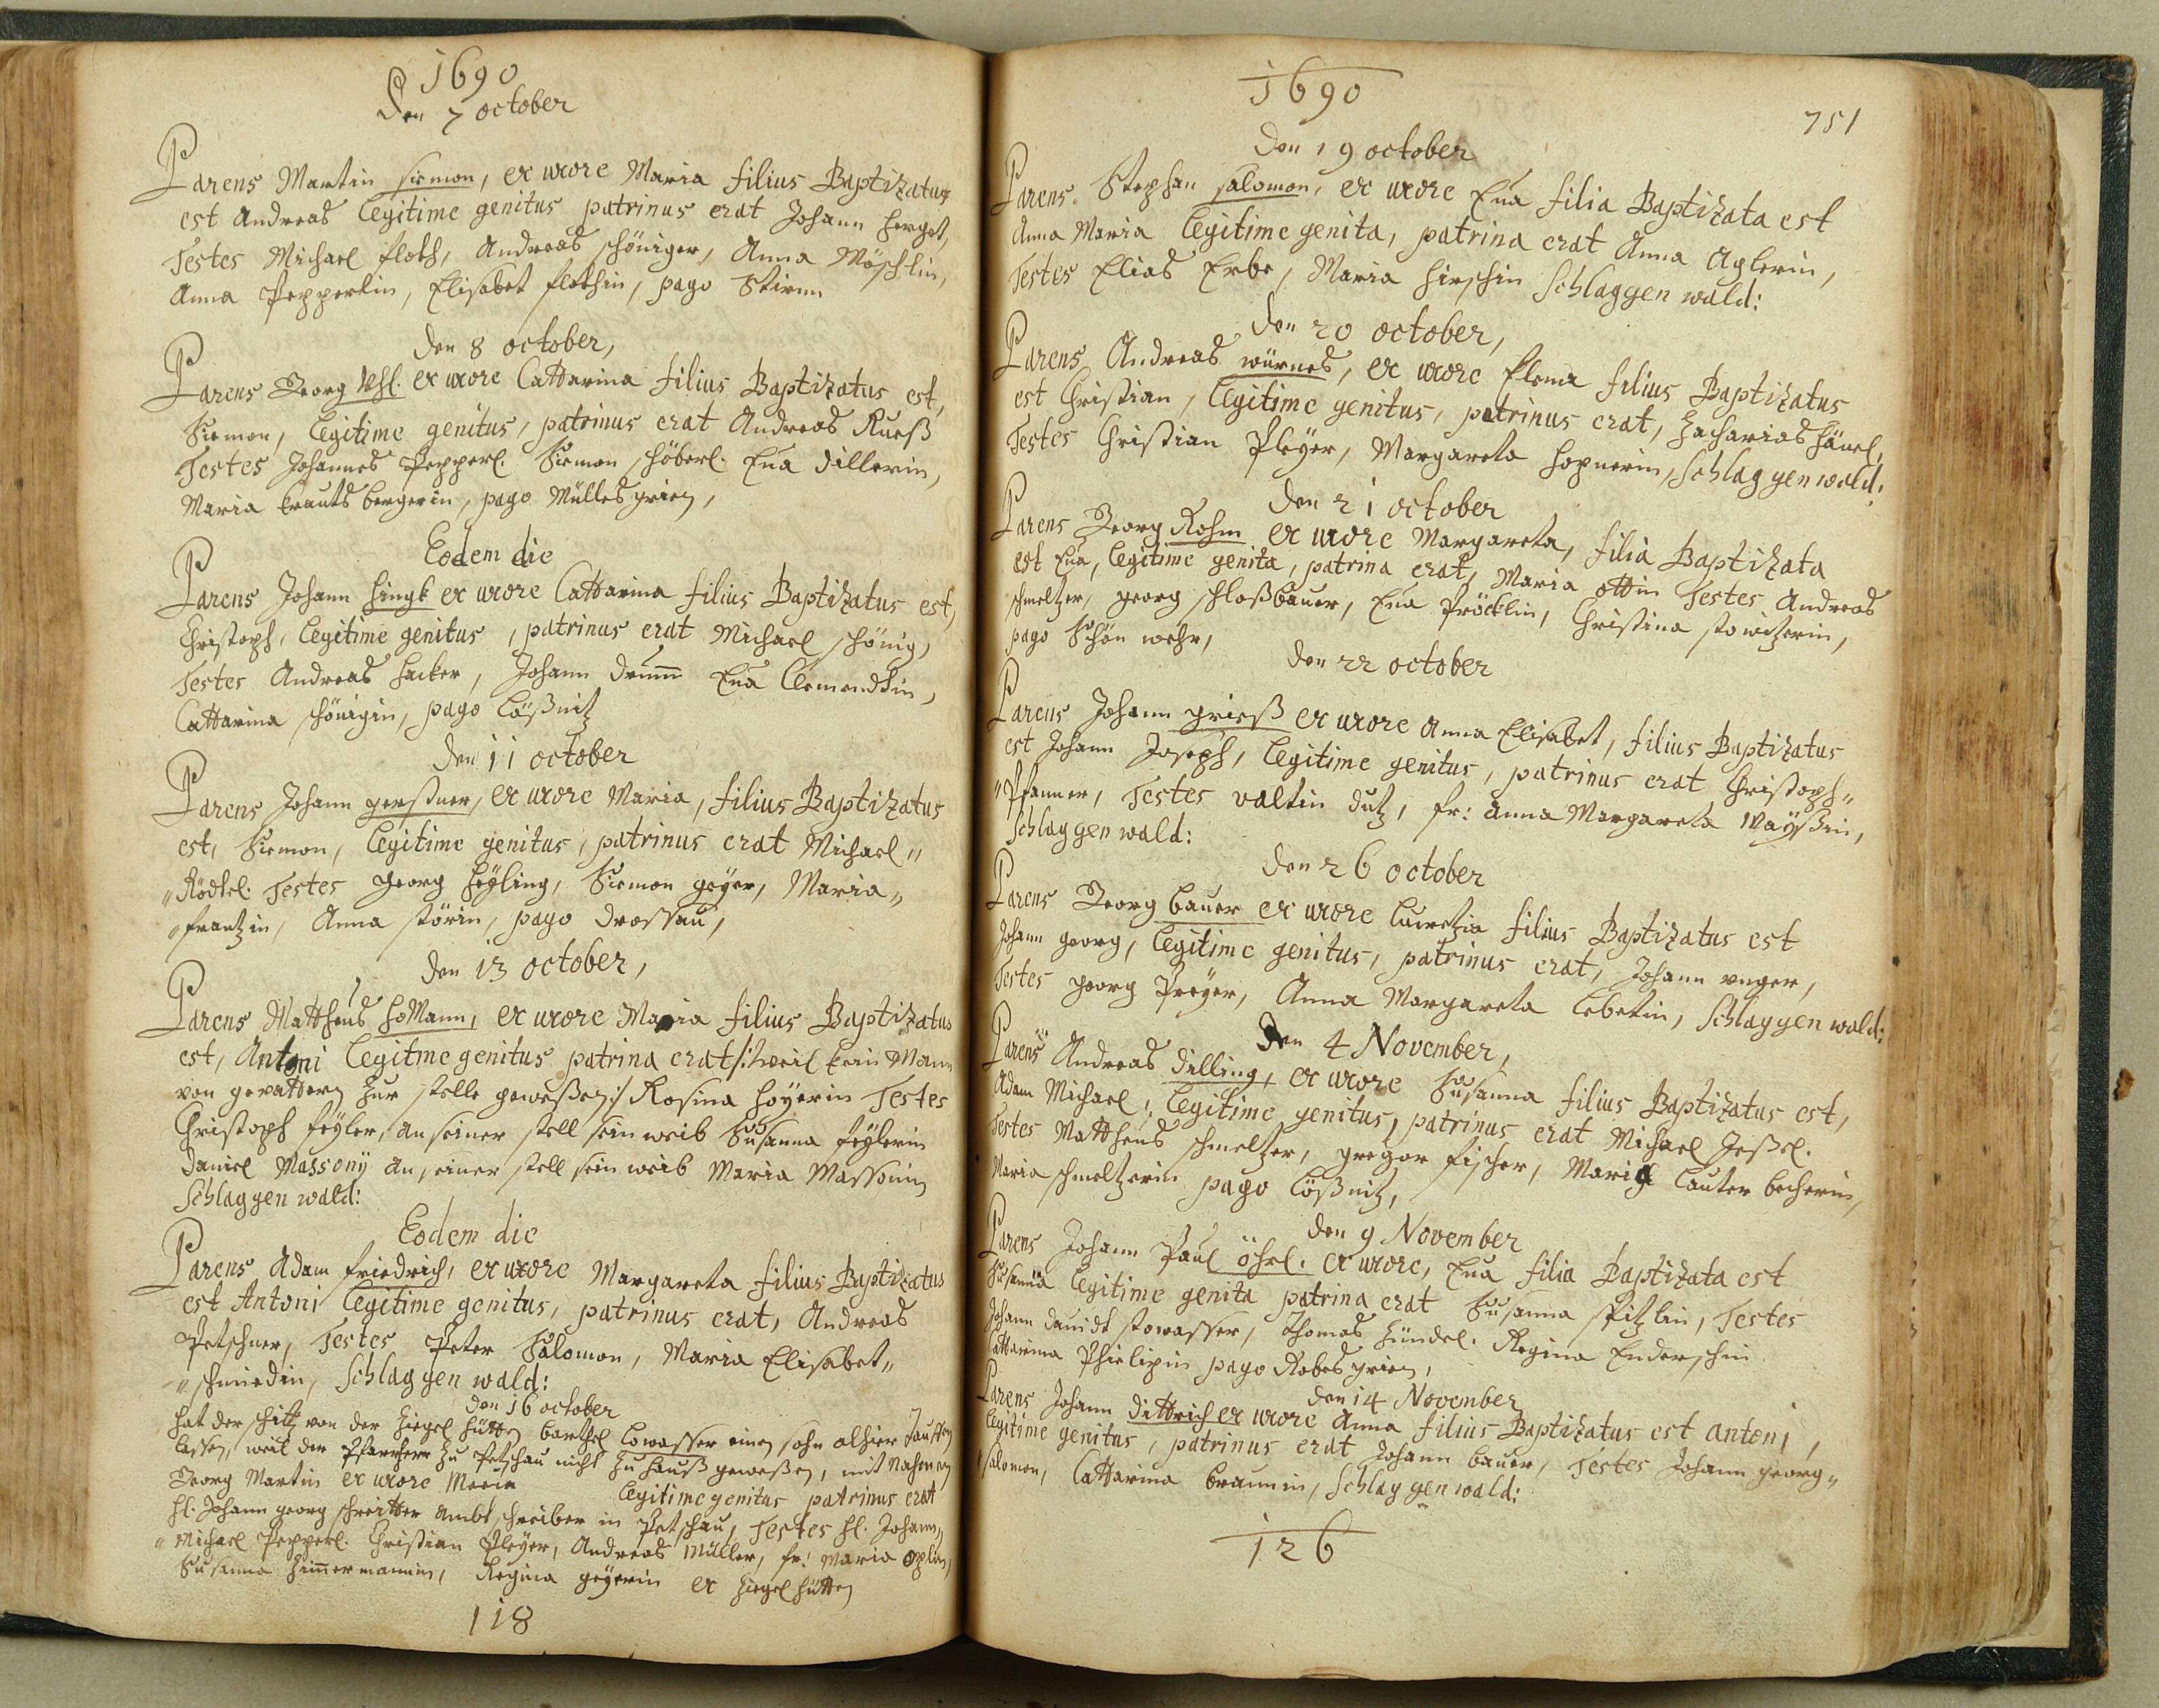 1690
Den 7 october
Parens Martin siemon, ex uxore Maria filius Baptizatus
est Andreas legitime genitus patrinus erat Johann herget,
Testes Michael floth, Andreas schöniger, Anna Möschlin,
Anna Pepperlin, Elisabet flothin, pago Stirnn
Den 8 october,
Parens Georg Uhl. ex uxore Cattarina filius Baptizatus est,
Siemon, legitime genitus, patrinus erat Andreas Rueß
Testes Johannes Pepperl. Siemon schöberl. Eua dillerin,
Maria krauts bergerin, pago Müllesgrien,
Eodem die
Parens Johann hingk ex uxore Cattarina filius Baptizatus est,
Christoph, legitime genitus, patrinus erat Michael schönig,
Testes Andreas hacker, Johann Deum̄ Eua Clementkin,
Cattarina schönigin, pago Lößnitz
Den 11 october
Parens Johann gerstner, ex uxore Maria, filius Baptizatus
est, Siemon, legitime genitus, patrinus erat Michael„
„Rödtel. Testes georg heyling, Siemon geyer, Maria„
„frantzin, Anna störin, pago drossau,
Den 13 october,
Parens Mattheus hoMann, ex uxore Maria filius Baptizatus
est, Antoni legitme genitus patrina erat /: weil kein Mann
von gevattern zur stelle gewesen :/ Rosina hoyerin Testes
Christoph feyler, an seiner stell sein weib Susanna feylerin
Daniel Massony an seiner stell sein weib Maria Massonin
Schlaggen wald:
Eodem die
Parens Adam friedrich, ex uxore Margareta filius Baptizatus
est Antoni legitime genitus, patrinus erat, Andreas
Petschner, Testes Peter Salomon, Maria Elisabet„
„schmiedin, Schlaggen wald:
Den 16 october
hat der schitz von der Ziegel hütten barthel Lowasser einen sohn alhier Tauffen
lassen, weil der Pfarrherr zu Petschau nicht zu hauß gewesen, mit Nahmen
Georg Martin ex uxore Maria legitime genitus patrinus erat
hl. Johann georg schreitter ambtschreiber in Petschau, Testes hl. Johann„
„Michael Pepperl. Christian Pleyer, Andreas Müller, fr: Maria oplin,
Susanna Zimmermannin, Regina geyerin ex Ziegelhütten
118
1690
751
Den 19 october
Parens Stephan salomon, ex uxore Eua filia Baptizata est
Anna Maria legitime genita, patrina erat Anna Aglerin,
Testes Elias Erbe, Maria hirschin Schlaggen wald:
Den 20 october,
Parens Andreas würnes, ex uxore Elena filius Baptizatus
est Christian, legitime genitus, patrinus erat, Zacharias hänel,
Testes Christian Pleyer, Margareta hopnerin, Schlaggen wald:
Den 21 october
Parens Georg Rohm ex uxore Margareta, filia Baptizata
est Eua, legitime genita, patrina erat, Maria ottin Testes Andreas
schmeltzer, georg schloßbauer, Eua Pröcklin, Christina stowitzerin,
pago Schön wehr,
Den 22 october
Parens Johann grieß ex uxore Anna Elisabet, filius Baptizatus
est Johann Joseph, legitime genitus, patrinus erat Christoph„
„Pfanner, Testes valtin dutz, fr: anna Margareta Waÿßin,
Schlaggen wald:
Den 26 october
Parens Georg bauer ex uxore Lucretzia filius Baptizatus est
Johann georg, legitime genitus, patrinus erat, Johann unger,
Testes georg Preyer, Anna Margareta Lebetin, Schlaggen wald:
Den 4 November,
Parens Andreas Dilling, ex uxore Susanna filius Baptizatus est,
Adam Michael, legitime genitus, patrinus erat Michael Jeßel.
Testes Mattheus schmeltzer, gregor fischer, Maria Lauter becherin,
Maria schmeltzerin pago Lößnitz,
Den 9 November
Parens Johann Paul öhrl. ex uxore, Eua filia Baptizata est
Susanna legitime genita patrina erat Susanna Pitzlin, Testes
Johann dauidt stowasser, Thomas hündel. Regina Enderschin
Cattarina Phielipin pago Robesgrien,
Den 14 November
Parens Johann dittrich ex uxore Anna filius Baptizatus est antoni,
legitime genitus, patrinus erat Johann bauer, Testes Johann georg„
„salomon, Cattarina braunin, Schlaggen wald:
126